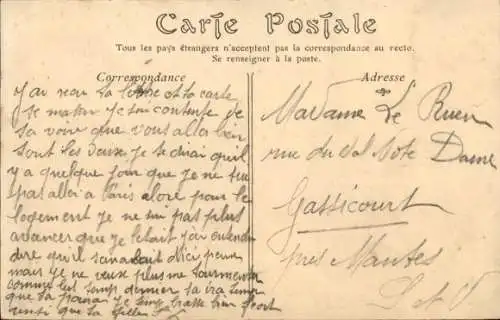 Carte Postale
Tous les pays étrangers n'acceptent pas la correspondance au recto.
Se renseigner à la poste.
Correspondance
Adresse
j'ai reçu la lettre et la carte
se matin je suis contente de
sa voire que vous aller bien
sont les vieux je te dirai qu'il
y a quelque jour que je ne
pas aller a Paris alore pour le
logement je ne sui pas plus
avancer que je l'etait j'ai entendu
dire qu'il
mais je ne veux plus me tourmenter
comme les temps dernier sa ira
que sa pourra je temp brasse bien fort
ainsi que ta fille
Madame Le
rue du Val Note Dame
Gassicourt
près Mantes
S et O